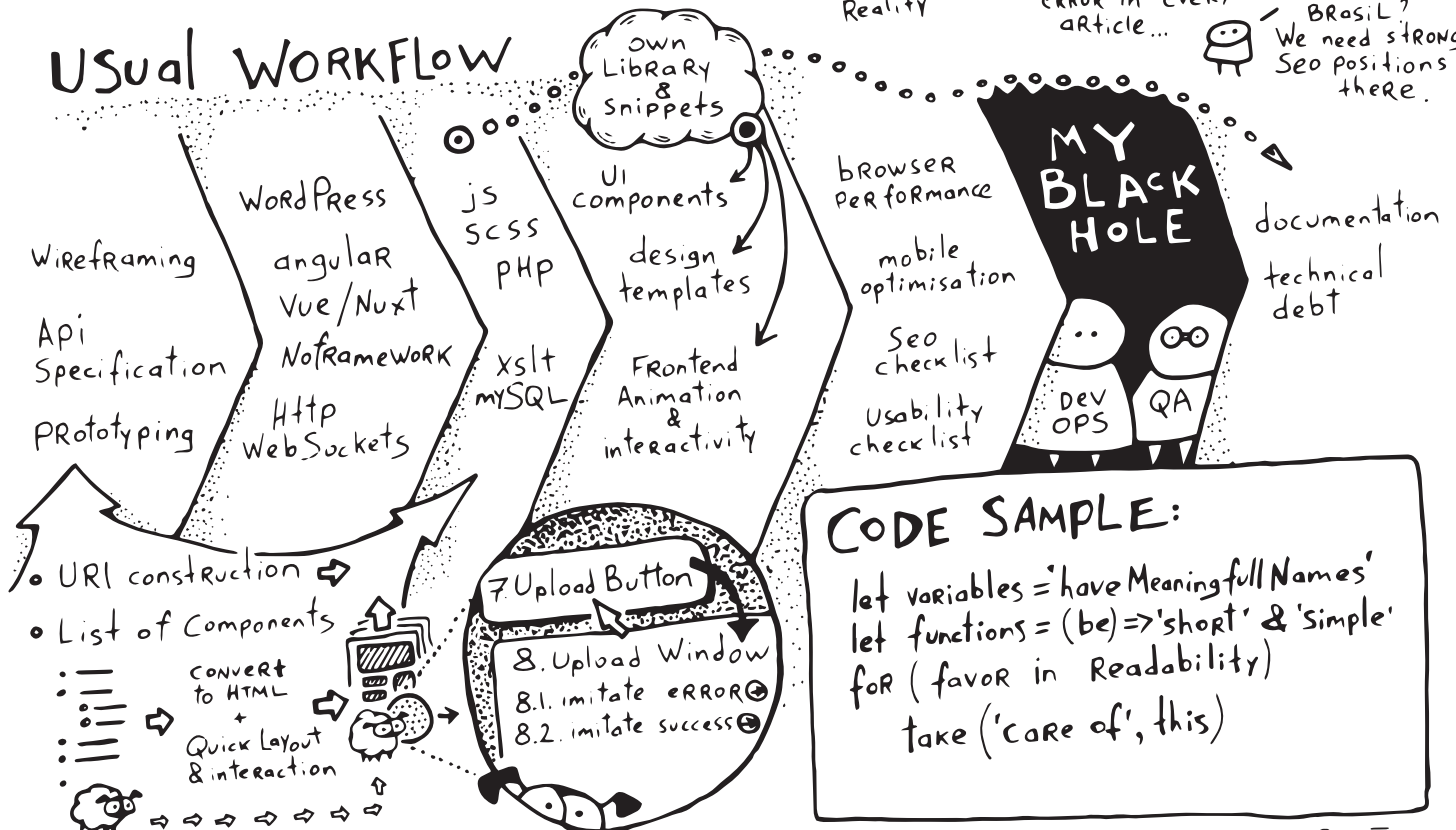 Reality
article...
Brasil?
We need strong
Seo positions
there.
Usual Workflow
Own
Library
&
Snippets
Wireframing
Api
Specification
Prototyping
WordPress
angular
Vue/Nuxt
Noframework
Http
WebSockets
js
scss
PHP
xslt
mySQL
UI
components
design
templates
Frontend
Animation
&
interactivity
browser
performance
mobile
optimisation
Seo
checklist
Usability
checklist
MY
BLACK
HOLE
Dev
OPS
QA
documentation
technical
debt
URI construction
List of Components
convert
to HTML
+
Quick Layout
& interaction
7. Upload Button
8. Upload Window
8.1. imitate error
8.2. imitate success
CODE SAMPLE:
let variables = 'have Meaningfull Names'
let functions = (be) => 'short' & 'simple'
for (favor in Readability)
take ('care of', this)